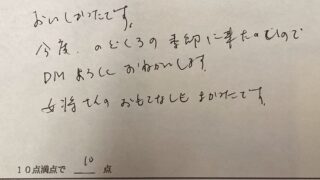 おいしかったです。
今度、のどぐろの季節に来たいので
DMよろしくおねがいします。
女将さんのおもてなしもよかったです。
10点満点で 10 点